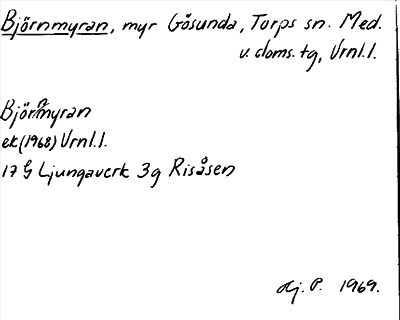 Björnmyran, myr Gösunda, Torps sn. Med.
v. doms. tg, Vrnl.l.
Björnmyran
ek (1968) Vrnl.l.
17 G Ljungaverk 3g Risåsen
Hj. P. 1969.